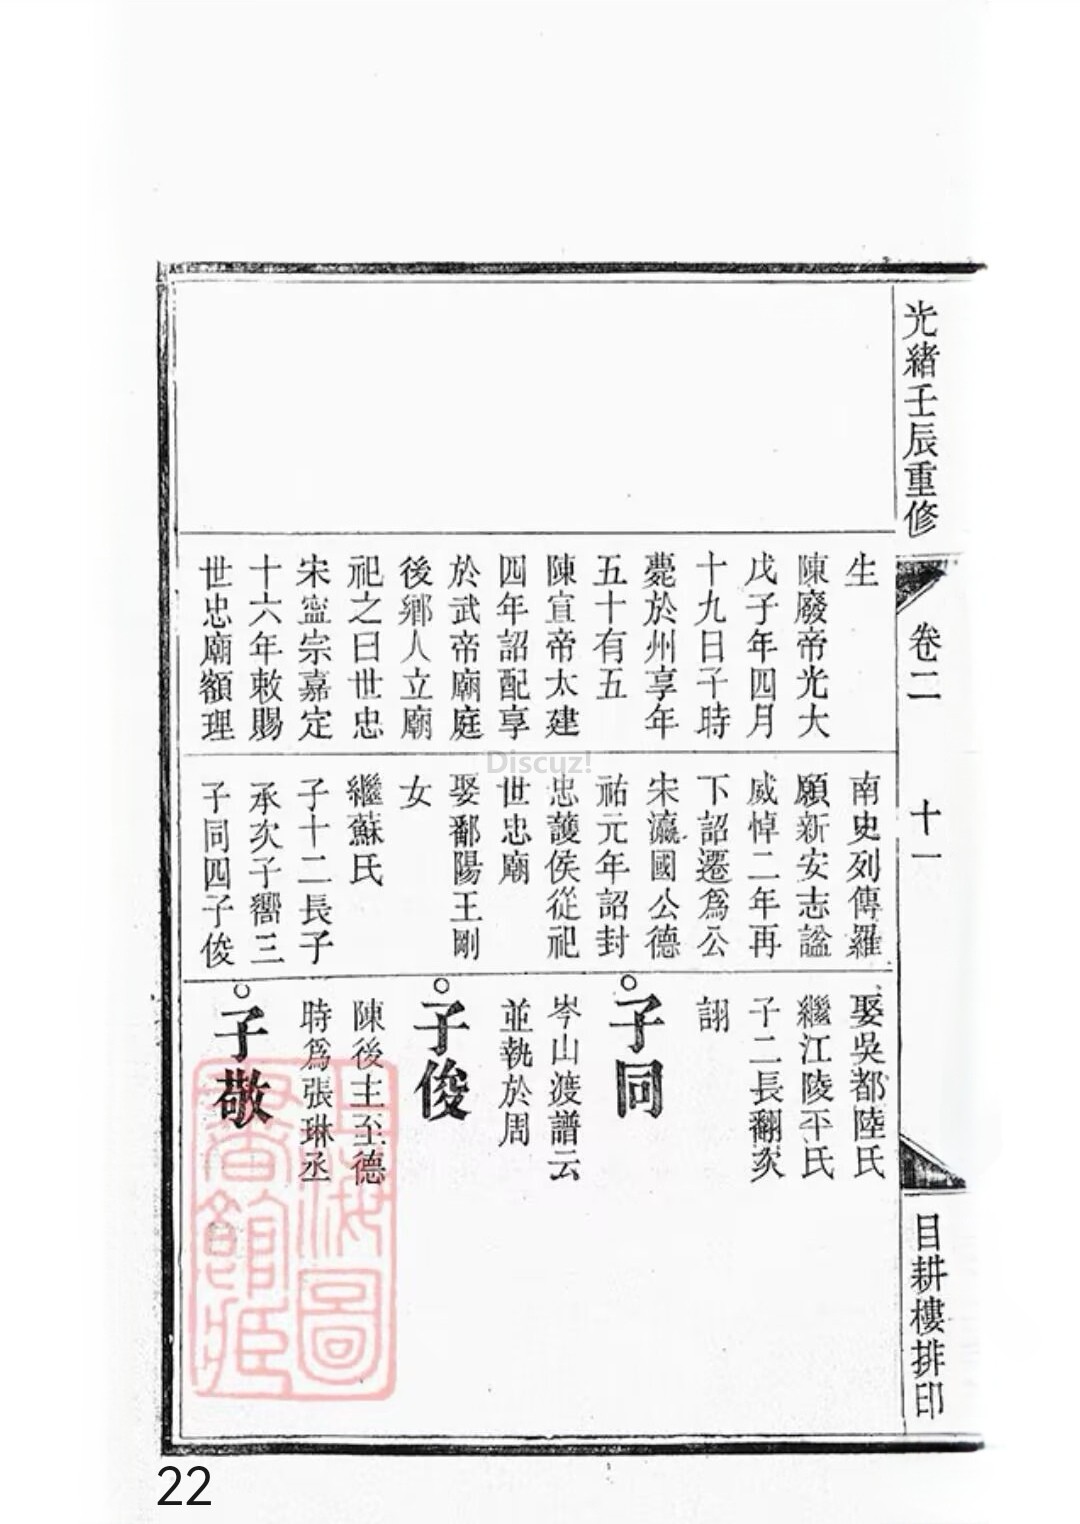 光緒壬辰重修
卷二
十一
目耕樓排印
生
陳廢帝光大
戊子年四月
十九日子時
薨於州享年
五十有五
陳宣帝太建
四年詔配享
於武帝廟庭
後鄉人立廟
祀之曰世忠
宋寍宗嘉定
十六年敕賜
世忠廟額理
南史列傳羅
願新安志謚
威悼二年再
下詔遷爲公
宋瀛國公德
祐元年詔封
忠護侯從祀
世忠廟
娶鄱陽王剛
女
繼蘇氏
子十二長子
承次子嚮三
子同四子俊
娶吳都陸氏
繼江陵平氏
子二長翻次
詡
○子同
岑山渡譜云
並執於周
○子俊
陳後主至德
時爲張琳丞
○子敬
上海圖書館藏
Discuz!
22